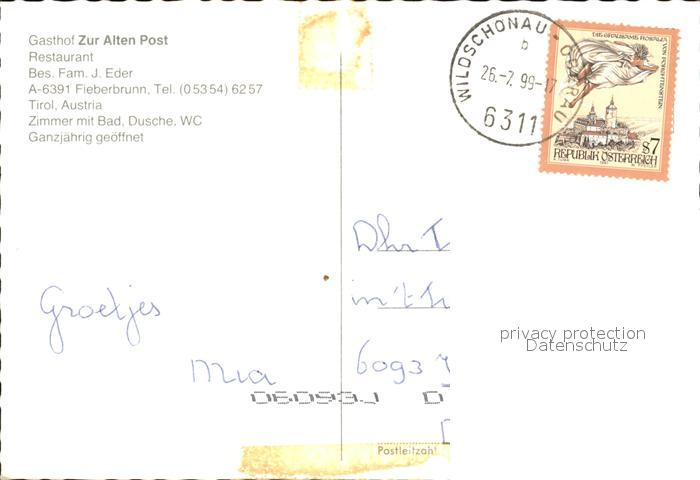 Gasthof Zur Alten Post
Restaurant
Bes. Fam. J. Eder
A-6391 Fieberbrunn, Tel. (05354) 6257
Tirol, Austria
Zimmer mit Bad, Dusche, WC
Ganzjährig geöffnet
WILDSCHÖNAU - OBERAU
b
26.-7. 99-17
6311
DIE GRAUSAME ROSALIA VON FORCHTENSTEIN
S7
REPUBLIK ÖSTERREICH
Dhr T
in 't
6093
Groetjes
Mia
06093J D
Postleitzahl
privacy protection
Datenschutz